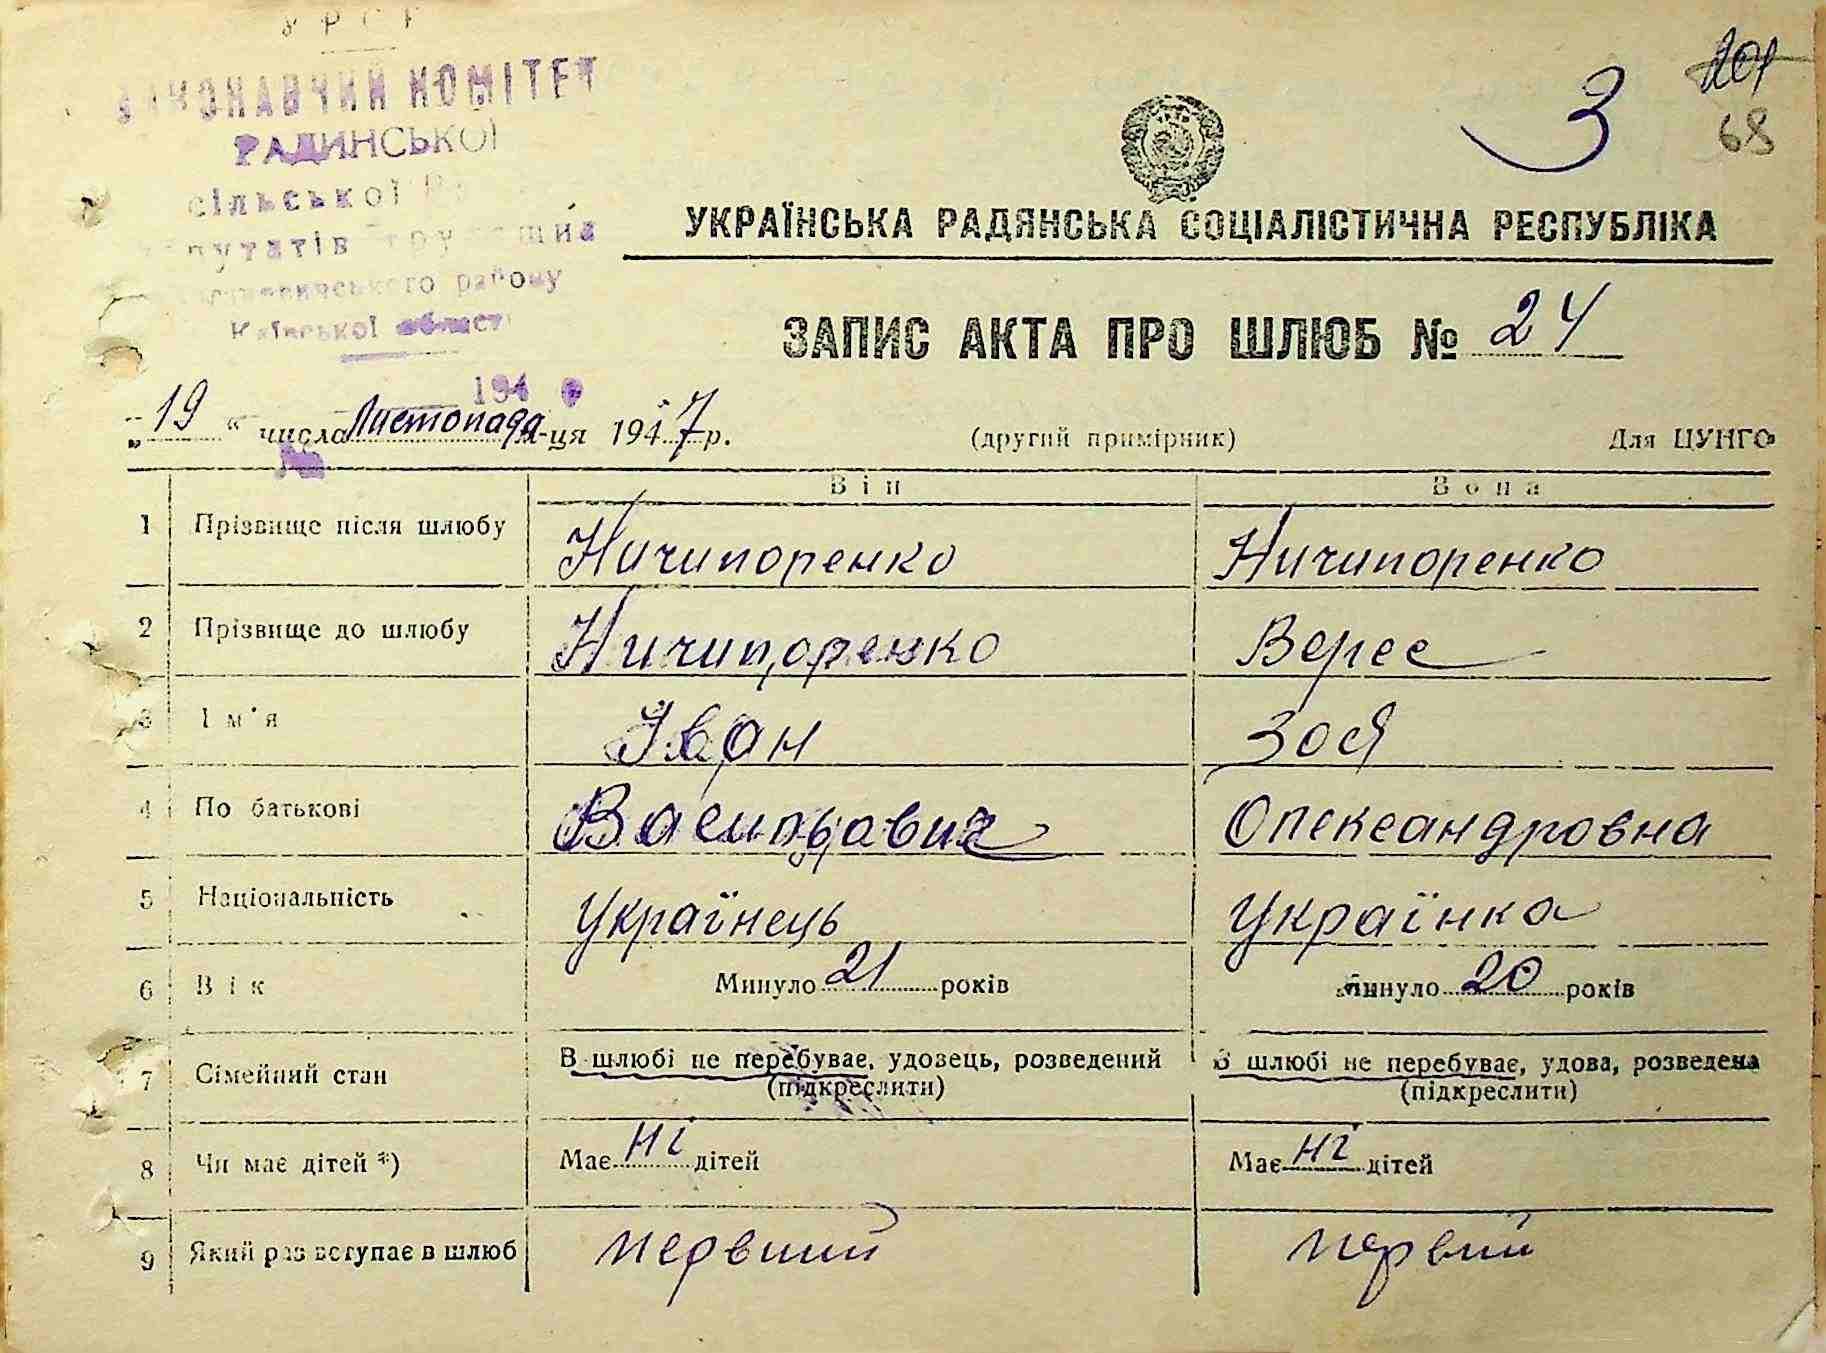 УРСР
ВИКОНАВЧИЙ КОМІТЕТ
РАДИНСЬКОЇ
сільської
путатів трудящих
району
Київської області
194
3
201
68
УКРАЇНСЬКА РАДЯНСЬКА СОЦІАЛІСТИЧНА РЕСПУБЛІКА
ЗАПИС АКТА ПРО ШЛЮБ № 24
„19“ числа Листопада м-ця 1947 р. (другий примірник) Для ЦУНГО
Він Вона
1 Прізвище після шлюбу Ничипоренко Ничипоренко
2 Прізвище до шлюбу Ничипоренко Верес
3 Ім'я Іван Зоя
4 По батькові Васильович Олександровна
5 Національність Українець Українка
6 Вік Минуло 21 років Минуло 20 років
7 Сімейний стан В шлюбі не перебуває, удовець, розведений В шлюбі не перебуває, удова, розведена
(підкреслити) (підкреслити)
8 Чи має дітей *) Має ні дітей Має ні дітей
9 Який раз вступає в шлюб первший первий